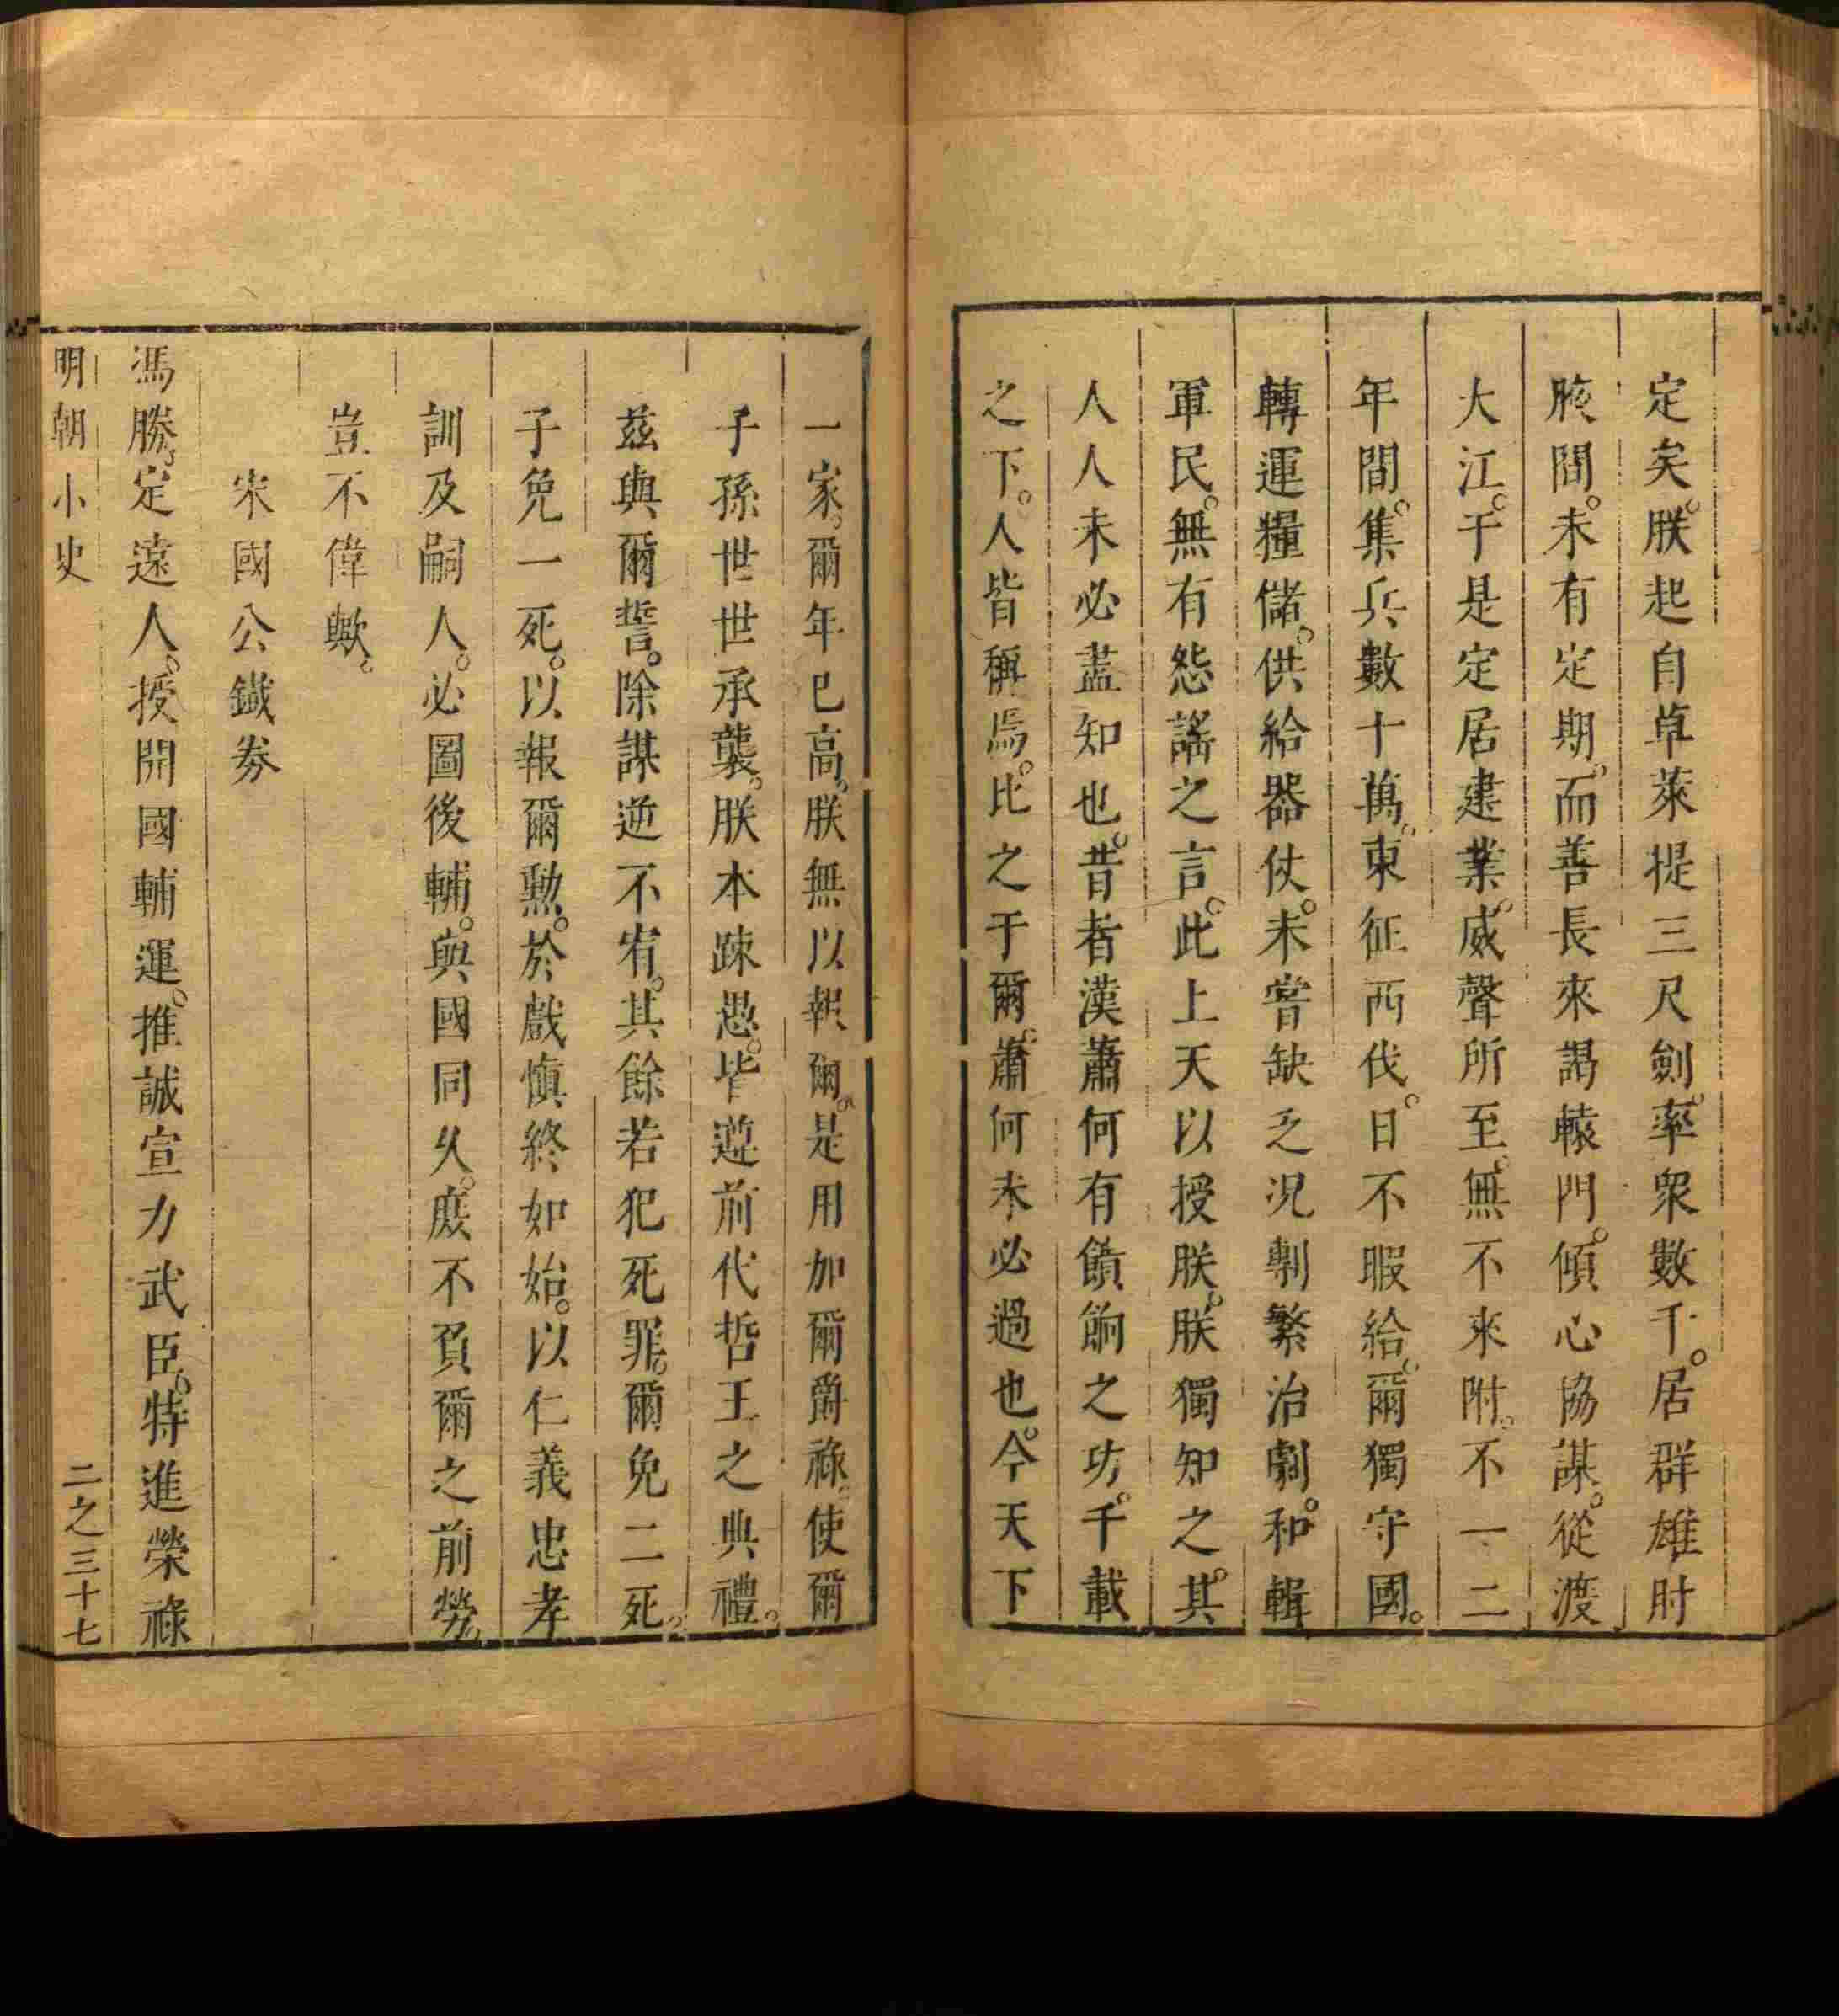 定矣。朕起自草萊提三尺劍。率衆數千。居群雄肘
腋間。未有定期。而善長來謁轅門。傾心協謀。從渡
大江。于是定居建業。威聲所至。無不來附。不一二
年間。集兵數十萬。東征西伐。日不暇給。爾獨守國。
轉運糧儲。供給器仗。未嘗缺乏况剸繁治劇。和輯
軍民。無有怨謠之言。此上天以授朕。朕獨知之。其
人人未必盡知也。昔者漢蕭何有饋餉之功。千載
之下。人皆稱焉。比之于爾。蕭何未必過也。今天下
一家。爾年已高。朕無以報爾。是用加爾爵祿。使爾
子孫世世承襲。朕本疎愚。皆遵前代哲王之典禮。
茲與爾誓。除謀逆不宥。其餘若犯死罪。爾免二死。
子免一死。以報爾勲。於戲愼終如始。以仁義忠孝
訓及嗣人。必圖後輔。與國同久。庶不負爾之前勞。
豈不偉歟。
宋國公鐵券
馮勝。定遠人。授開國輔運。推誠宣力武臣。特進榮祿
明朝小史 二之三十七